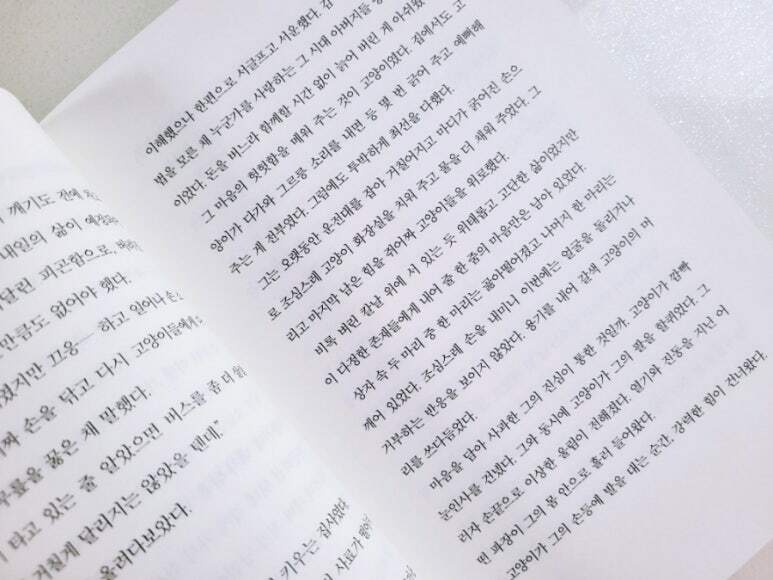 깨기도 전에
내일의 삶이
달린 피곤함으로,
만큼도 없어야 했다.
겼지만 끄응── 하고 일어나
손을 닦고 다시 고양이들에게
무릎을 꿇은 채 말했다.
타고 있는 줄 알았으면 버스를 좀 더
거칠게 달리지는 않았을 텐데.”
올려다보았다.
키우는 집사였다
사료가
이해했으나 한편으로 서글프고 서운했다.
법을 모른 채 누군가를 사랑하는 그 시대 아버지들
이었다. 돈을 버느라 함께할 시간 없이 늙어 버린 게 아쉬웠
그 마음의 헛헛함을 메워 주는 것이 고양이였다. 집에서도 고
양이가 다가와 그르릉 소리를 내면 등 몇 번 긁어 주고 예뻐해
주는 게 전부였다. 그럼에도 투박하게 최선을 다했다.
그는 오랫동안 운전대를 잡아 거칠어지고 마디가 굵어진 손으
로 조심스레 고양이 화장실을 치워 주고 물을 더 채워 주었다. 그
리고 마지막 남은 힘을 쥐어짜 고양이들을 위로했다.
비록 버린 칼날 위에 서 있는 듯 위태롭고 고단한 삶이었지만
이 다정한 존재들에게 내어 줄 한 줌의 마음만은 남아 있었다.
상자 속 두 마리 중 한 마리는 곯아떨어졌고 나머지 한 마리는
깨어 있었다. 조심스레 손을 내미니 이번에는 얼굴을 돌리거나
거부하는 반응을 보이지 않았다. 용기를 내어 갈색 고양이의 머
리를 쓰다듬었다.
마음을 담아 사과한 그의 진심이 통한 것일까. 고양이가 깜빡
눈인사를 건넸다. 그와 동시에 고양이가 그의 팔을 핥았다. 그
리자 손끝으로 이상한 울림이 전해졌다. 열기와 진동을 지닌 어
떤 파장이 그의 몸 안으로 흘러 들어왔다.
고양이가 그의 손등에 발을 대는 순간, 강력한 힘이 건너왔다.